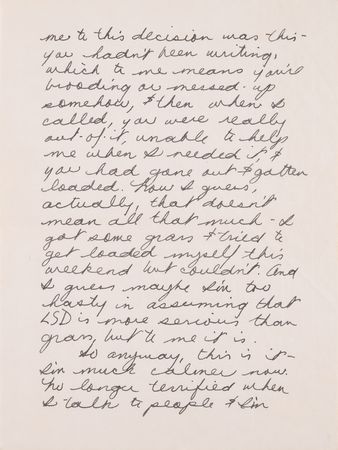 me to this decision was this -
you hadn't been writing,
which to me means you're
brooding or messed-up
somehow, & then when I
called, you were really
out-of-it, unable to help
me when I needed it, &
you had gone out & gotten
loaded. Now I guess,
actually, that doesn't
mean all that much - I
got some grass & tried to
get loaded myself this
weekend but couldn't. And
I guess maybe I'm too
hasty in assuming that
LSD is more serious than
grass, but to me it is.
So anyway, this is it -
I'm much calmer now.
No longer terrified when
I talk to people & I'm